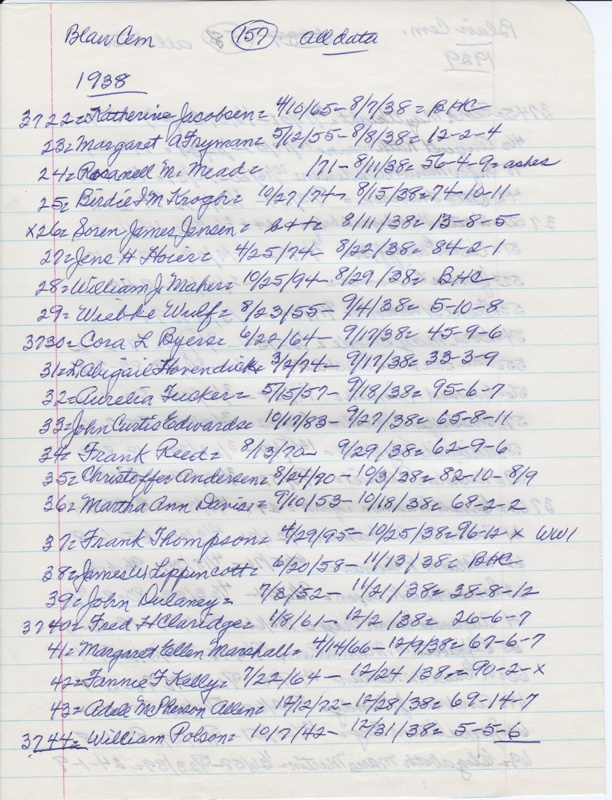 Blair Cem 8 157 all data
1938
3722= Katherine Jacobsen= 4/10/65- 8/7/38= BHC
23= Margaret A Fryman= 5/12/55- 8/8/38= 12-2-4
24= Roxanell M. Mead= /71- 8/11/38= 56-4-9= ashes
25= Birdie I M Krogh= 10/27/74- 8/15/38= 74-10-11
x26= Soren James Jensen= 8/11/38= 13-8-5
27= Jens H Hoier= 4/25/74- 8/22/38= 84-2-1
28= William J. Maher= 10/25/94- 8/29/38= BHC
29= Wiebke Wulf= 8/23/55- 9/4/38= 5-10-8
3730= Cora L Byers= 6/22/64- 9/17/38= 45-9-6
31= L. Abigail Hovendick= 3/2/74- 9/17/38= 33-3-9
32= Aurelia Tucker= 5/15/57- 9/18/38= 95-6-7
33= John Curtis Edwards= 10/17/83- 9/27/38= 65-8-11
34= Frank Reed= 8/13/70- 9/29/38= 62-9-6
35= Christoffer Andersen= 8/24/90- 10/3/38= 82-10-8/9
36= Martha Ann Davis= 9/10/53- 10/18/38= 68-2-2
37= Frank Thompson= 4/29/95- 10/25/38= 96-12-x WW1
38= James W Lippincott= 6/20/58- 11/13/38= BHC
39= John Dulaney= 7/8/52- 11/21/38= 38-8-12
3740= Fred H Claridge= 1/8/61- 12/2/38= 26-6-7
41= Margaret Ellen Marshall= 4/14/66- 12/9/38= 67-6-7
42= Fannie F Kelly= 7/22/64- 12/24/38= 90-2-x
43= Adell McPherson Allen= 12/12/72- 12/28/38= 69-14-7
3744= William Polson= 10/7/42- 12/31/38= 5-5-6